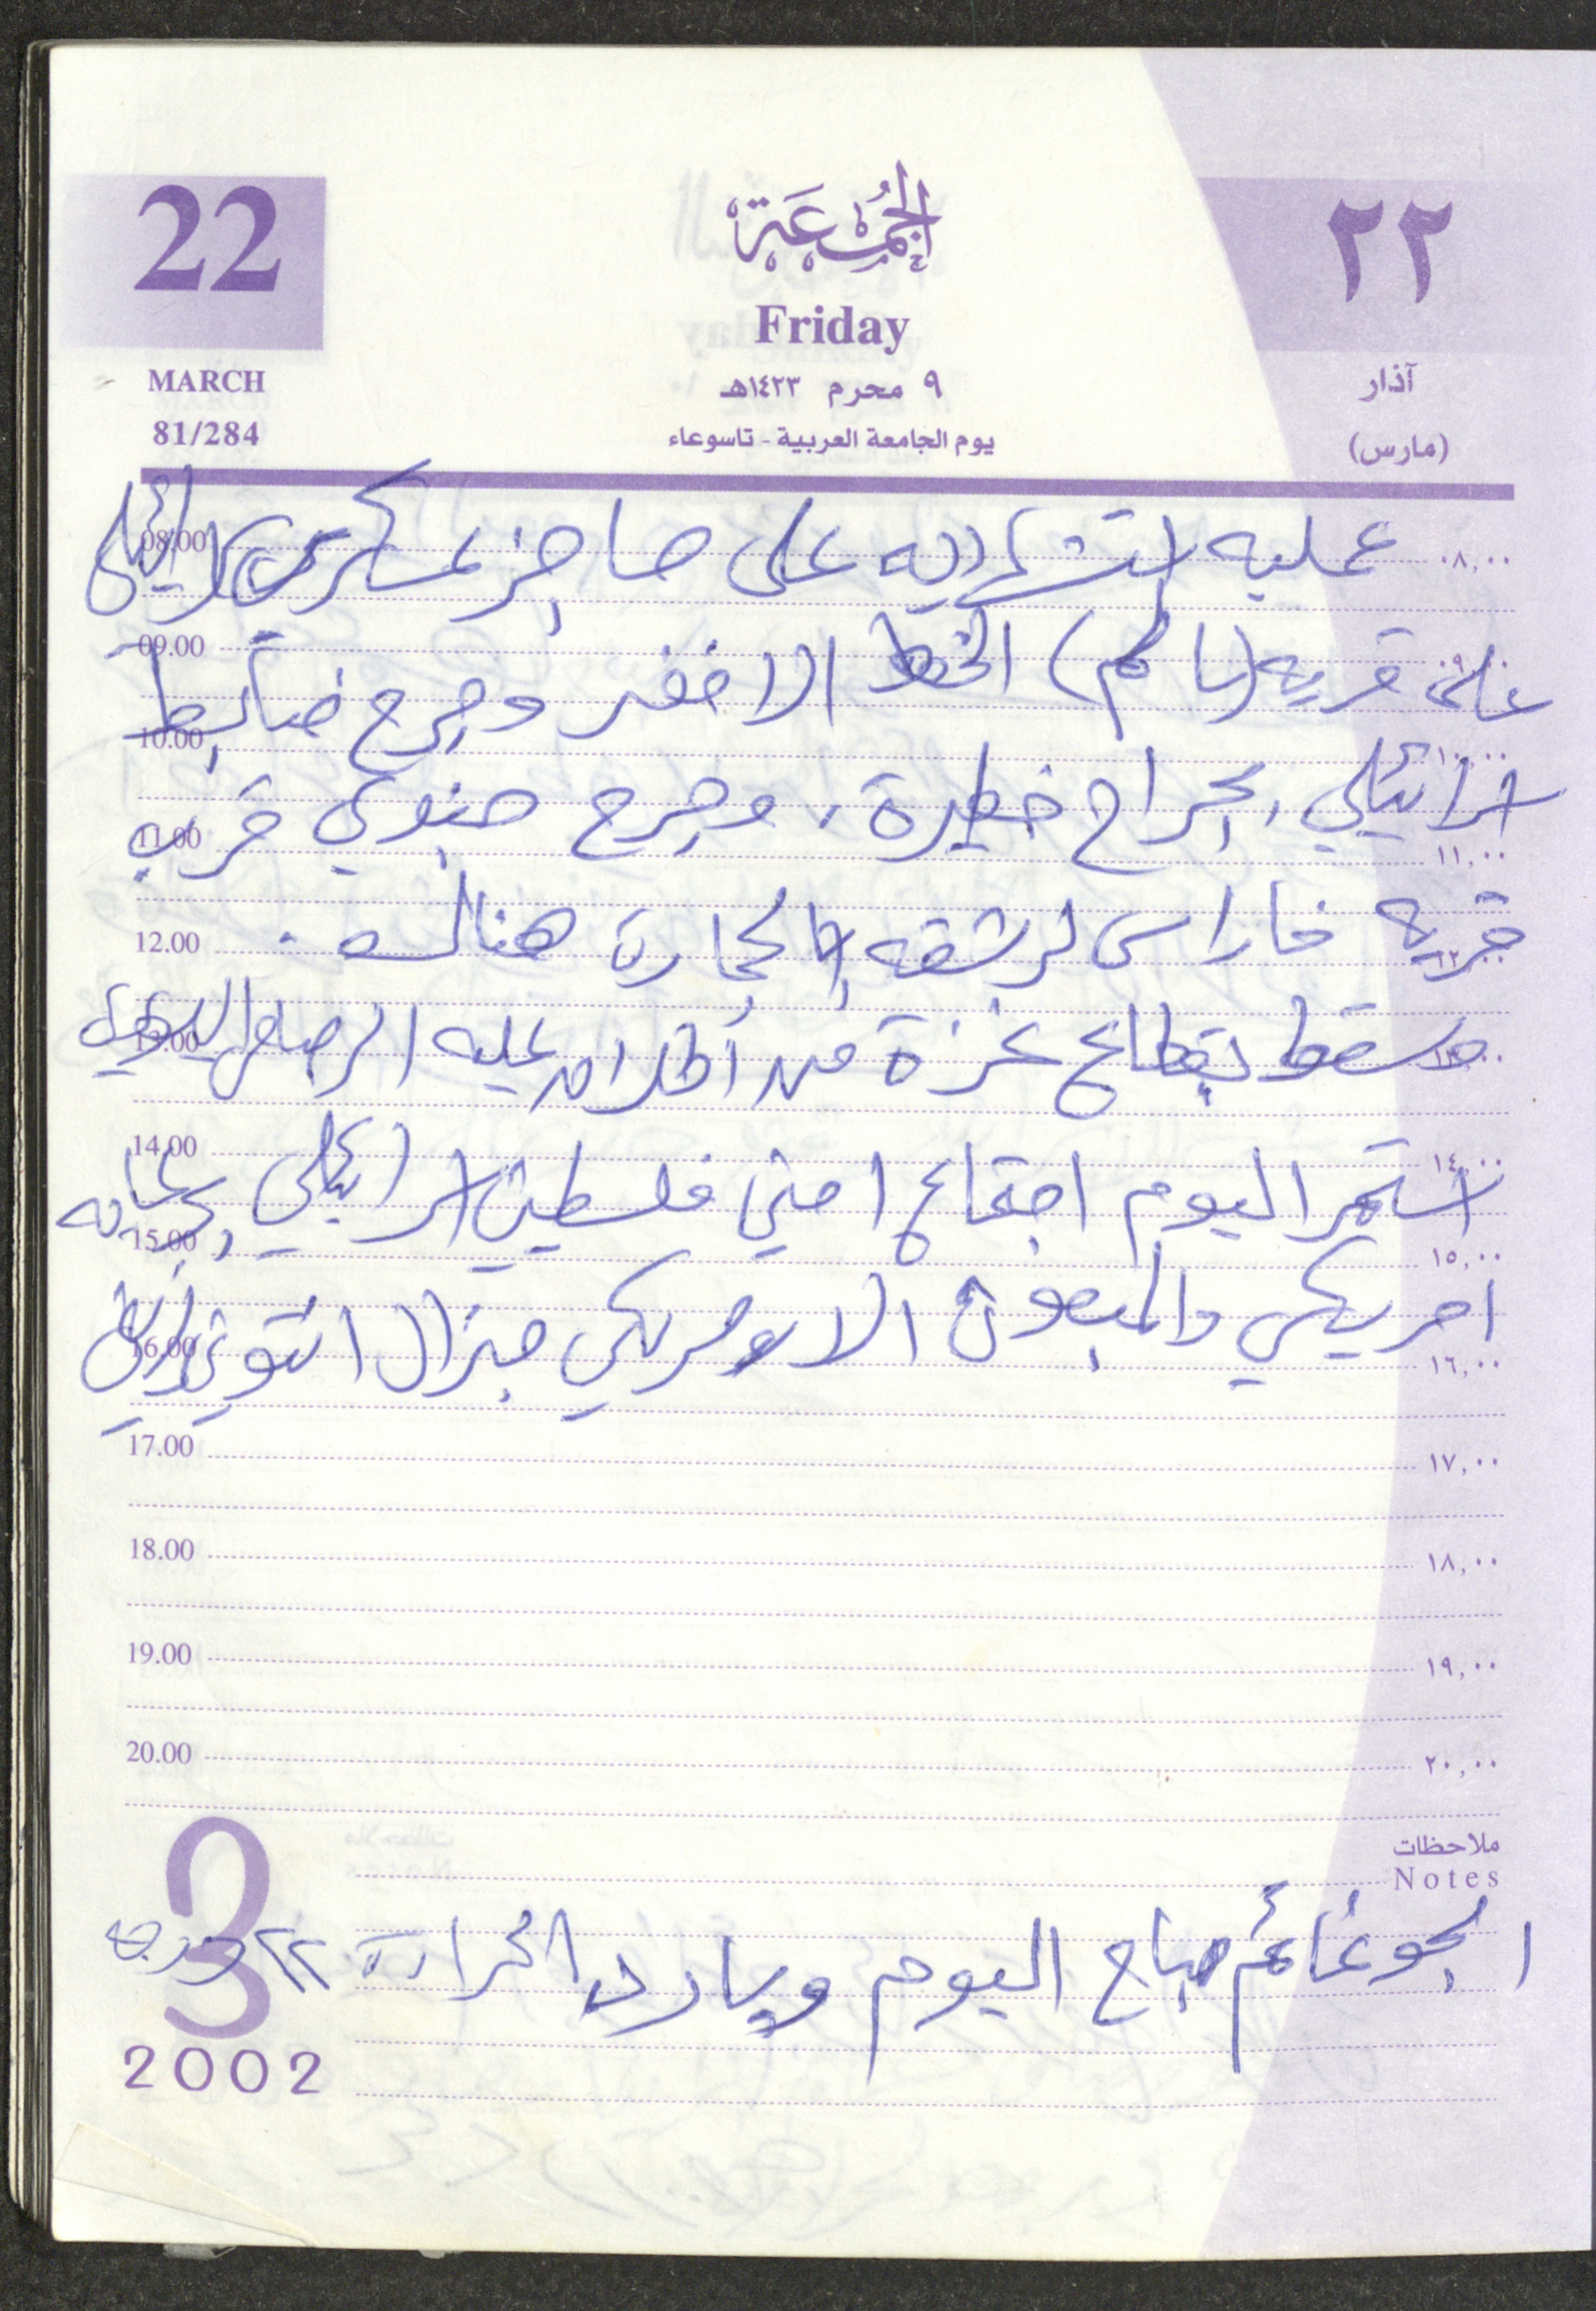 22
الجُمُعَة
٢٢
Friday
MARCH
٩ محرم ١٤٢٣هـ
آذار
81/284
يوم الجامعة العربية - تاسوعاء
(مارس)
08.00 عمليه استشهاديه على حاجز عسكري اسرائيلي ٠٨,٠٠
09.00 قريه (سالم) الخط الاخضر وجرح ضابط ٠٩,٠٠
10.00 اسرائيلي بجراح خطيرة، وجرح جنوبي قرب ١٠,٠٠
11.00 ١١,٠٠
قريه خاراس لرشقه بالحجارة هنالك.
12.00 ١٢,٠٠
وسقط بقطاع غزة من اطلاق عليه الرصاص اليهود
13.00 ١٣,٠٠
14.00 استمر اليوم اجتماع امني فلسطيني اسرائيلي برعايه ١٤,٠٠
15.00 ١٥,٠٠
امريكي والمبعوث الامريكي جنرال انتوني زيني
16.00 ١٦,٠٠
17.00 ١٧,٠٠
18.00 ١٨,٠٠
19.00 ١٩,٠٠
20.00 ٢٠,٠٠
ملاحظات
Notes
الجو غائم صباح اليوم وبارد الحرارة ٢٢ درجه
3
2002